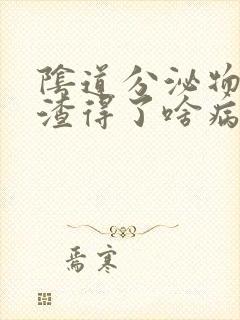 陰道分泌物
渣得了啥病
焉寒